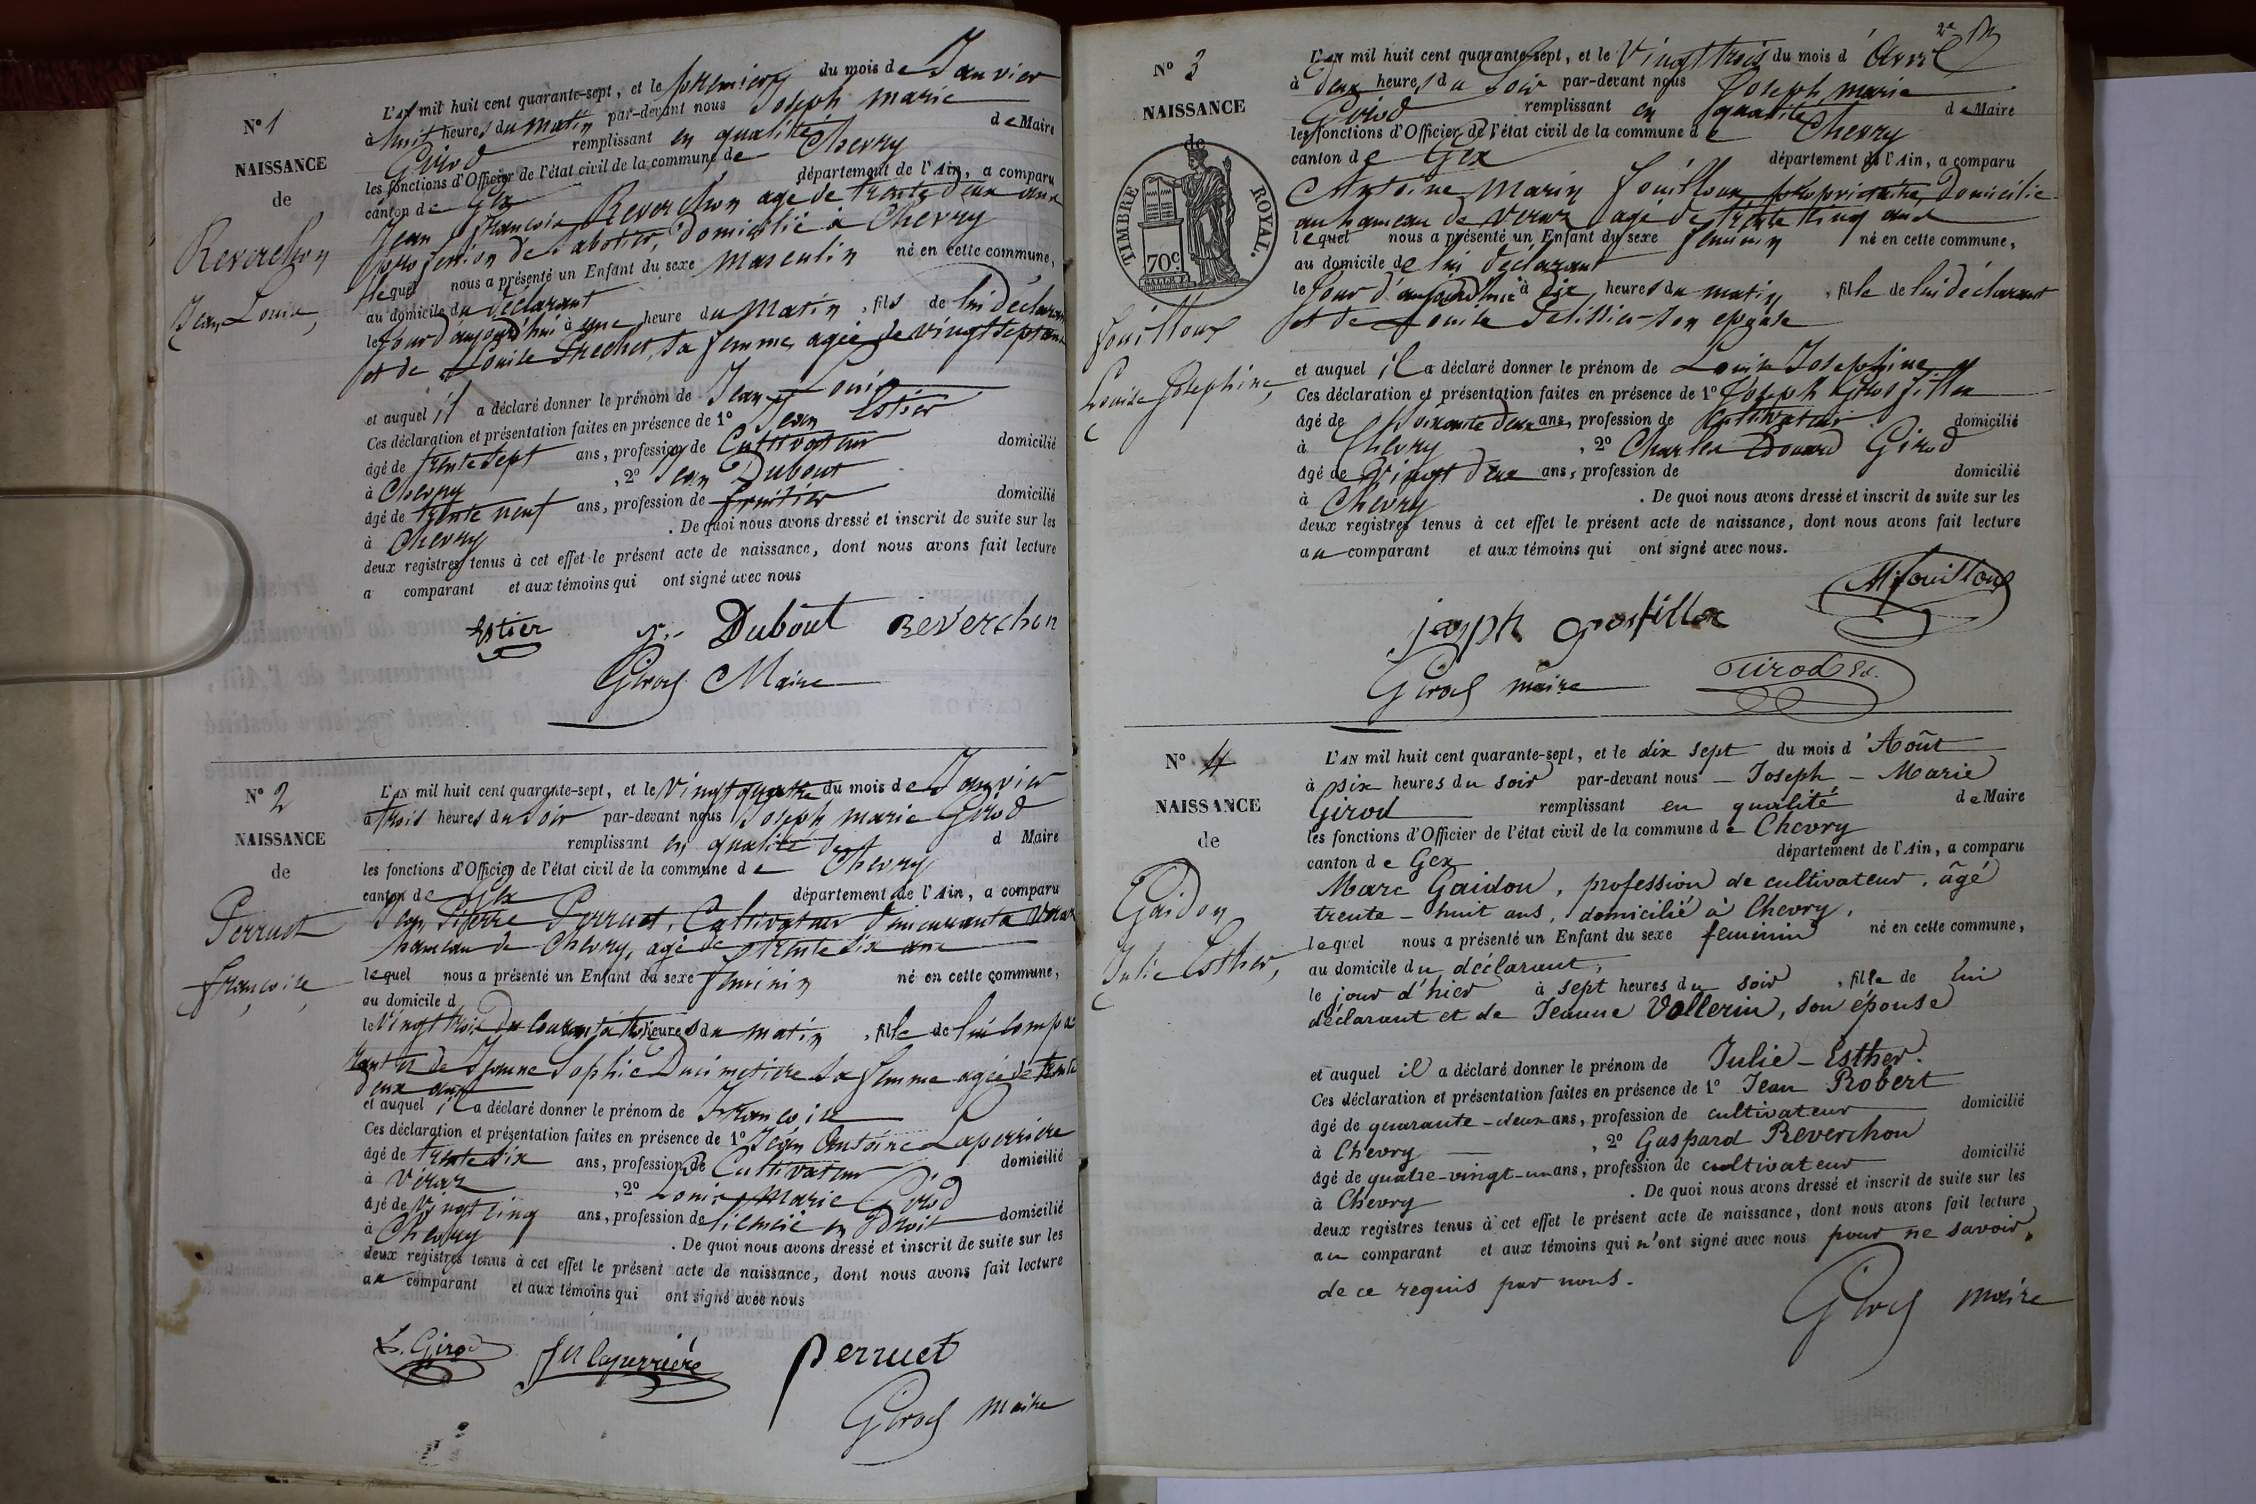 N° 1
NAISSANCE
de
Reverchon
Jean Louis,
L'AN mil huit cent quarante-sept, et le premier du mois de Janvier
à huit heures du matin par-devant nous Joseph marie
Girod remplissant en qualité de Maire
les fonctions d'Officier de l'état civil de la commune de Chevry
canton de Gex département de l'Ain, a comparu
Jean François Reverchon agé de trente deux ans
profession de Sabotier, domicilié à Chevry
lequel nous a présenté un Enfant du sexe masculin né en cette commune,
au domicile du déclarant
le jour d'aujourd'hui à une heure du matin, fils de lui déclarant
et de Louise Prechet, sa femme, agée de vingt sept ans
et auquel il a déclaré donner le prénom de Jean Louis
Ces déclaration et présentation faites en présence de 1° Jean Estier
âgé de trente sept ans, profession de Cultivateur domicilié
à Chevry, 2° Jean Dubout
âgé de trente neuf ans, profession de fruitier domicilié
à Chevry. De quoi nous avons dressé et inscrit de suite sur les
deux registres tenus à cet effet le présent acte de naissance, dont nous avons fait lecture
a comparant et aux témoins qui ont signé avec nous
Estier Dubout Reverchon
Girod Maire
N° 2
NAISSANCE
de
Perruet
françoise,
L'AN mil huit cent quarante-sept, et le vingt quatre du mois de Janvier
à trois heures du soir par-devant nous Joseph marie Girod
remplissant en qualité de Maire
les fonctions d'Officier de l'état civil de la commune de Chevry
canton de Gex département de l'Ain, a comparu
Jean Pierre Perruet, Cultivateur Demeurant a Véraz
hameau de Chevry, agé de trente six ans
lequel nous a présenté un Enfant du sexe féminin né en cette commune,
au domicile d
le vingt trois du courant à trois heures du matin, fille de lui compa
rant et de Jeanne Sophie Dumetier sa femme agée de trente
deux ans
et auquel il a déclaré donner le prénom de Françoise
Ces déclaration et présentation faites en présence de 1° Jean Antoine Laperrière
âgé de trente six ans, profession de Cultivateur domicilié
à Véraz, 2° Louis Marie Girod
âgé de vingt cinq ans, profession de licencié en Droit domicilié
à Chevry. De quoi nous avons dressé et inscrit de suite sur les
deux registres tenus à cet effet le présent acte de naissance, dont nous avons fait lecture
au comparant et aux témoins qui ont signé avec nous
L. Girod Laperrière Perruet
Girod maire
2e
N° 3
NAISSANCE
de
TIMBRE ROYAL.
70c
fouilloux
Louise Josephine,
L'AN mil huit cent quarante-sept, et le vingt trois du mois d'Avril
à deux heures du soir par-devant nous Joseph marie
Girod remplissant en qualité de Maire
les fonctions d'Officier de l'état civil de la commune de Chevry
canton de Gex département de l'Ain, a comparu
Antoine Marin fouilloux propriétaire, domicilié
au hameau de Véraz agé de trente cinq ans
lequel nous a présenté un Enfant du sexe féminin né en cette commune,
au domicile de lui déclarant
le jour d'aujourd'hui à dix heures du matin, fille de lui déclarant
et de Louise Pelissier son épouse
et auquel il a déclaré donner le prénom de Louise Josephine
Ces déclaration et présentation faites en présence de 1° Joseph Grosfillex
âgé de soixante deux ans, profession de Cultivateur domicilié
à Chevry, 2° Charles Edouard Girod
âgé de vingt deux ans, profession de domicilié
à Chevry. De quoi nous avons dressé et inscrit de suite sur les
deux registres tenus à cet effet le présent acte de naissance, dont nous avons fait lecture
au comparant et aux témoins qui ont signé avec nous.
M. fouilloux
joseph grosfillex
Girod maire Girod Ed.
N° 4
NAISSANCE
de
Gaidon
Julie Esther,
L'AN mil huit cent quarante-sept, et le dix sept du mois d'Août
à six heures du soir par-devant nous Joseph-Marie
Girod remplissant en qualité de Maire
les fonctions d'Officier de l'état civil de la commune de Chevry
canton de Gex département de l'Ain, a comparu
Marc Gaidon, profession de cultivateur, âgé
trente-huit ans, domicilié à Chevry,
lequel nous a présenté un Enfant du sexe feminin né en cette commune,
au domicile du déclarant,
le jour d'hier à sept heures du soir, fille de lui
déclarant et de Jeanne Vallerin, son épouse
et auquel il a déclaré donner le prénom de Julie-Esther.
Ces déclaration et présentation faites en présence de 1° Jean Robert
âgé de quarante-deux ans, profession de cultivateur domicilié
à Chevry, 2° Gaspard Reverchon
âgé de quatre-vingt-un ans, profession de cultivateur domicilié
à Chevry. De quoi nous avons dressé et inscrit de suite sur les
deux registres tenus à cet effet le présent acte de naissance, dont nous avons fait lecture
au comparant et aux témoins qui n'ont signé avec nous pour ne savoir,
de ce requis par nous.
Girod maire